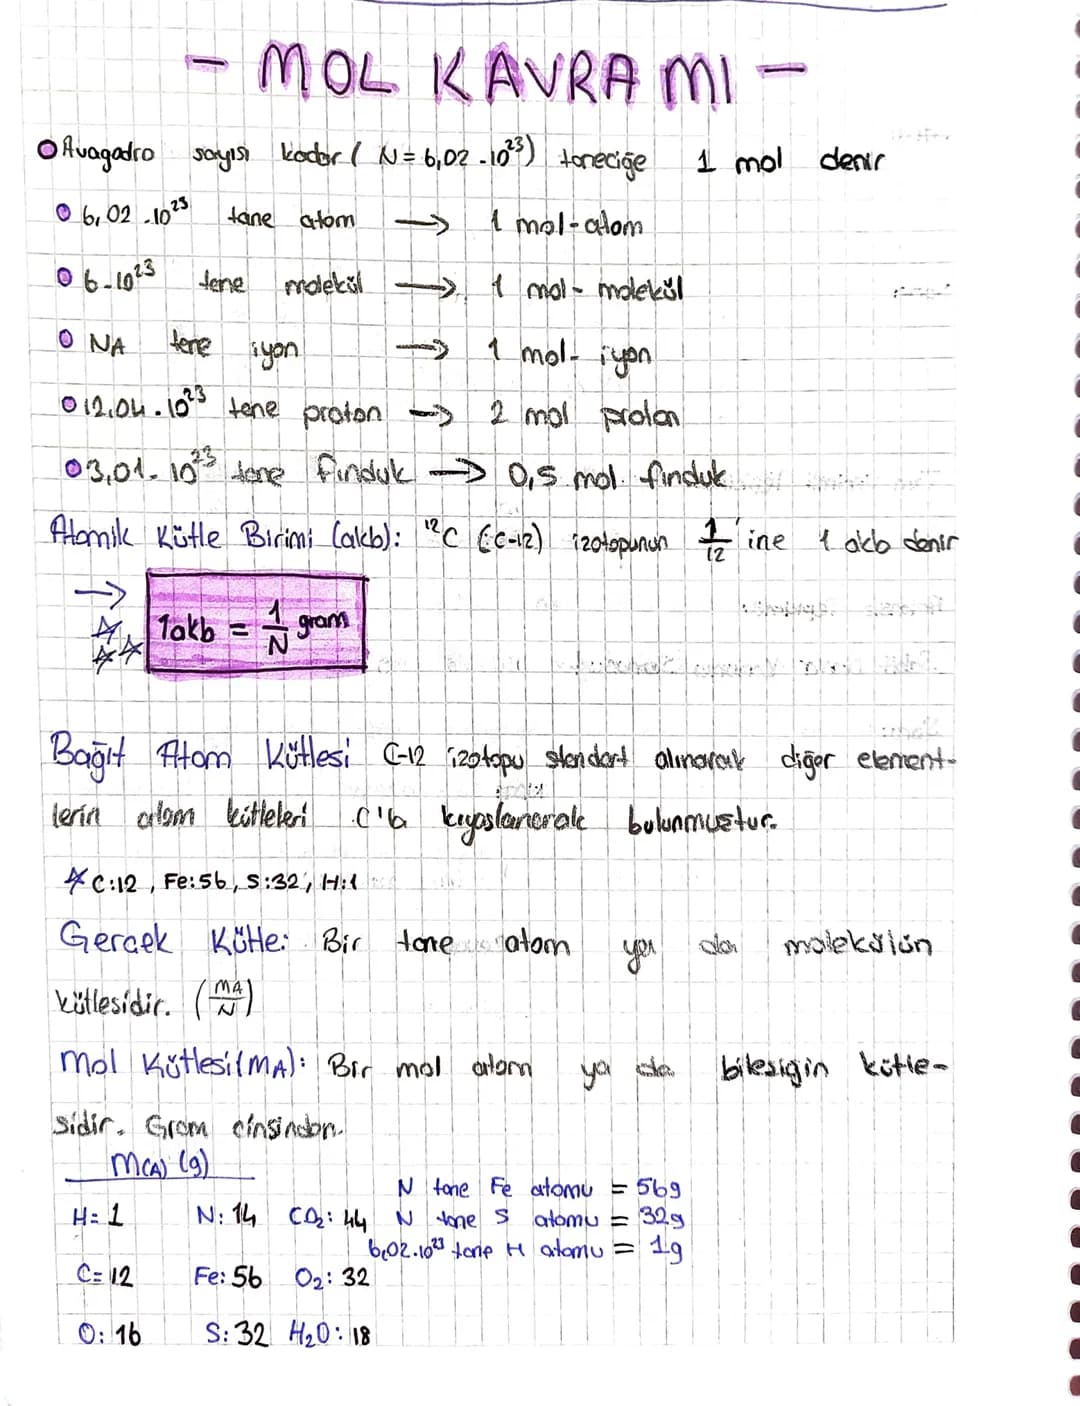 - MOL KAVRAMI -
Avagadro sayısı kadar ( N = 6,02 . 10²³ ) taneciğe 1 mol denir
6,02 . 10²³ tane atom → 1 mol-atom
6 . 10²³ tane molekül → 1 mol - molekül
NA tane iyon → 1 mol - iyon
12,04 . 10²³ tane proton → 2 mol proton
3,01 . 10²³ tane fındık → 0,5 mol fındık
Atomik Kütle Birimi (akb): ¹²C (C-12) izotopunun 1/12 'ine 1 akb denir
→ 1akb = 1/N gram
Bağıt Atom Kütlesi C-12 izotopu standart alınarak diğer element-
lerin atom kütleleri C'la kıyaslanarak bulunmuştur.
C:12 , Fe:56, S:32, H:1
Gerçek Kütle: Bir tane atom ya da molekülün
kütlesidir. (MA/N)
Mol Kütlesi(MA): Bir mol atom ya da bileşiğin kütle-
sidir. Gram cinsinden.
M(A) (g)
N tane Fe atomu = 56g
H= 1 N: 14 CO₂: 44 N tane S atomu = 32g
6,02.10²³ tane H atomu = 1g
C= 12 Fe: 56 O₂: 32
O: 16 S: 32 H₂O: 18